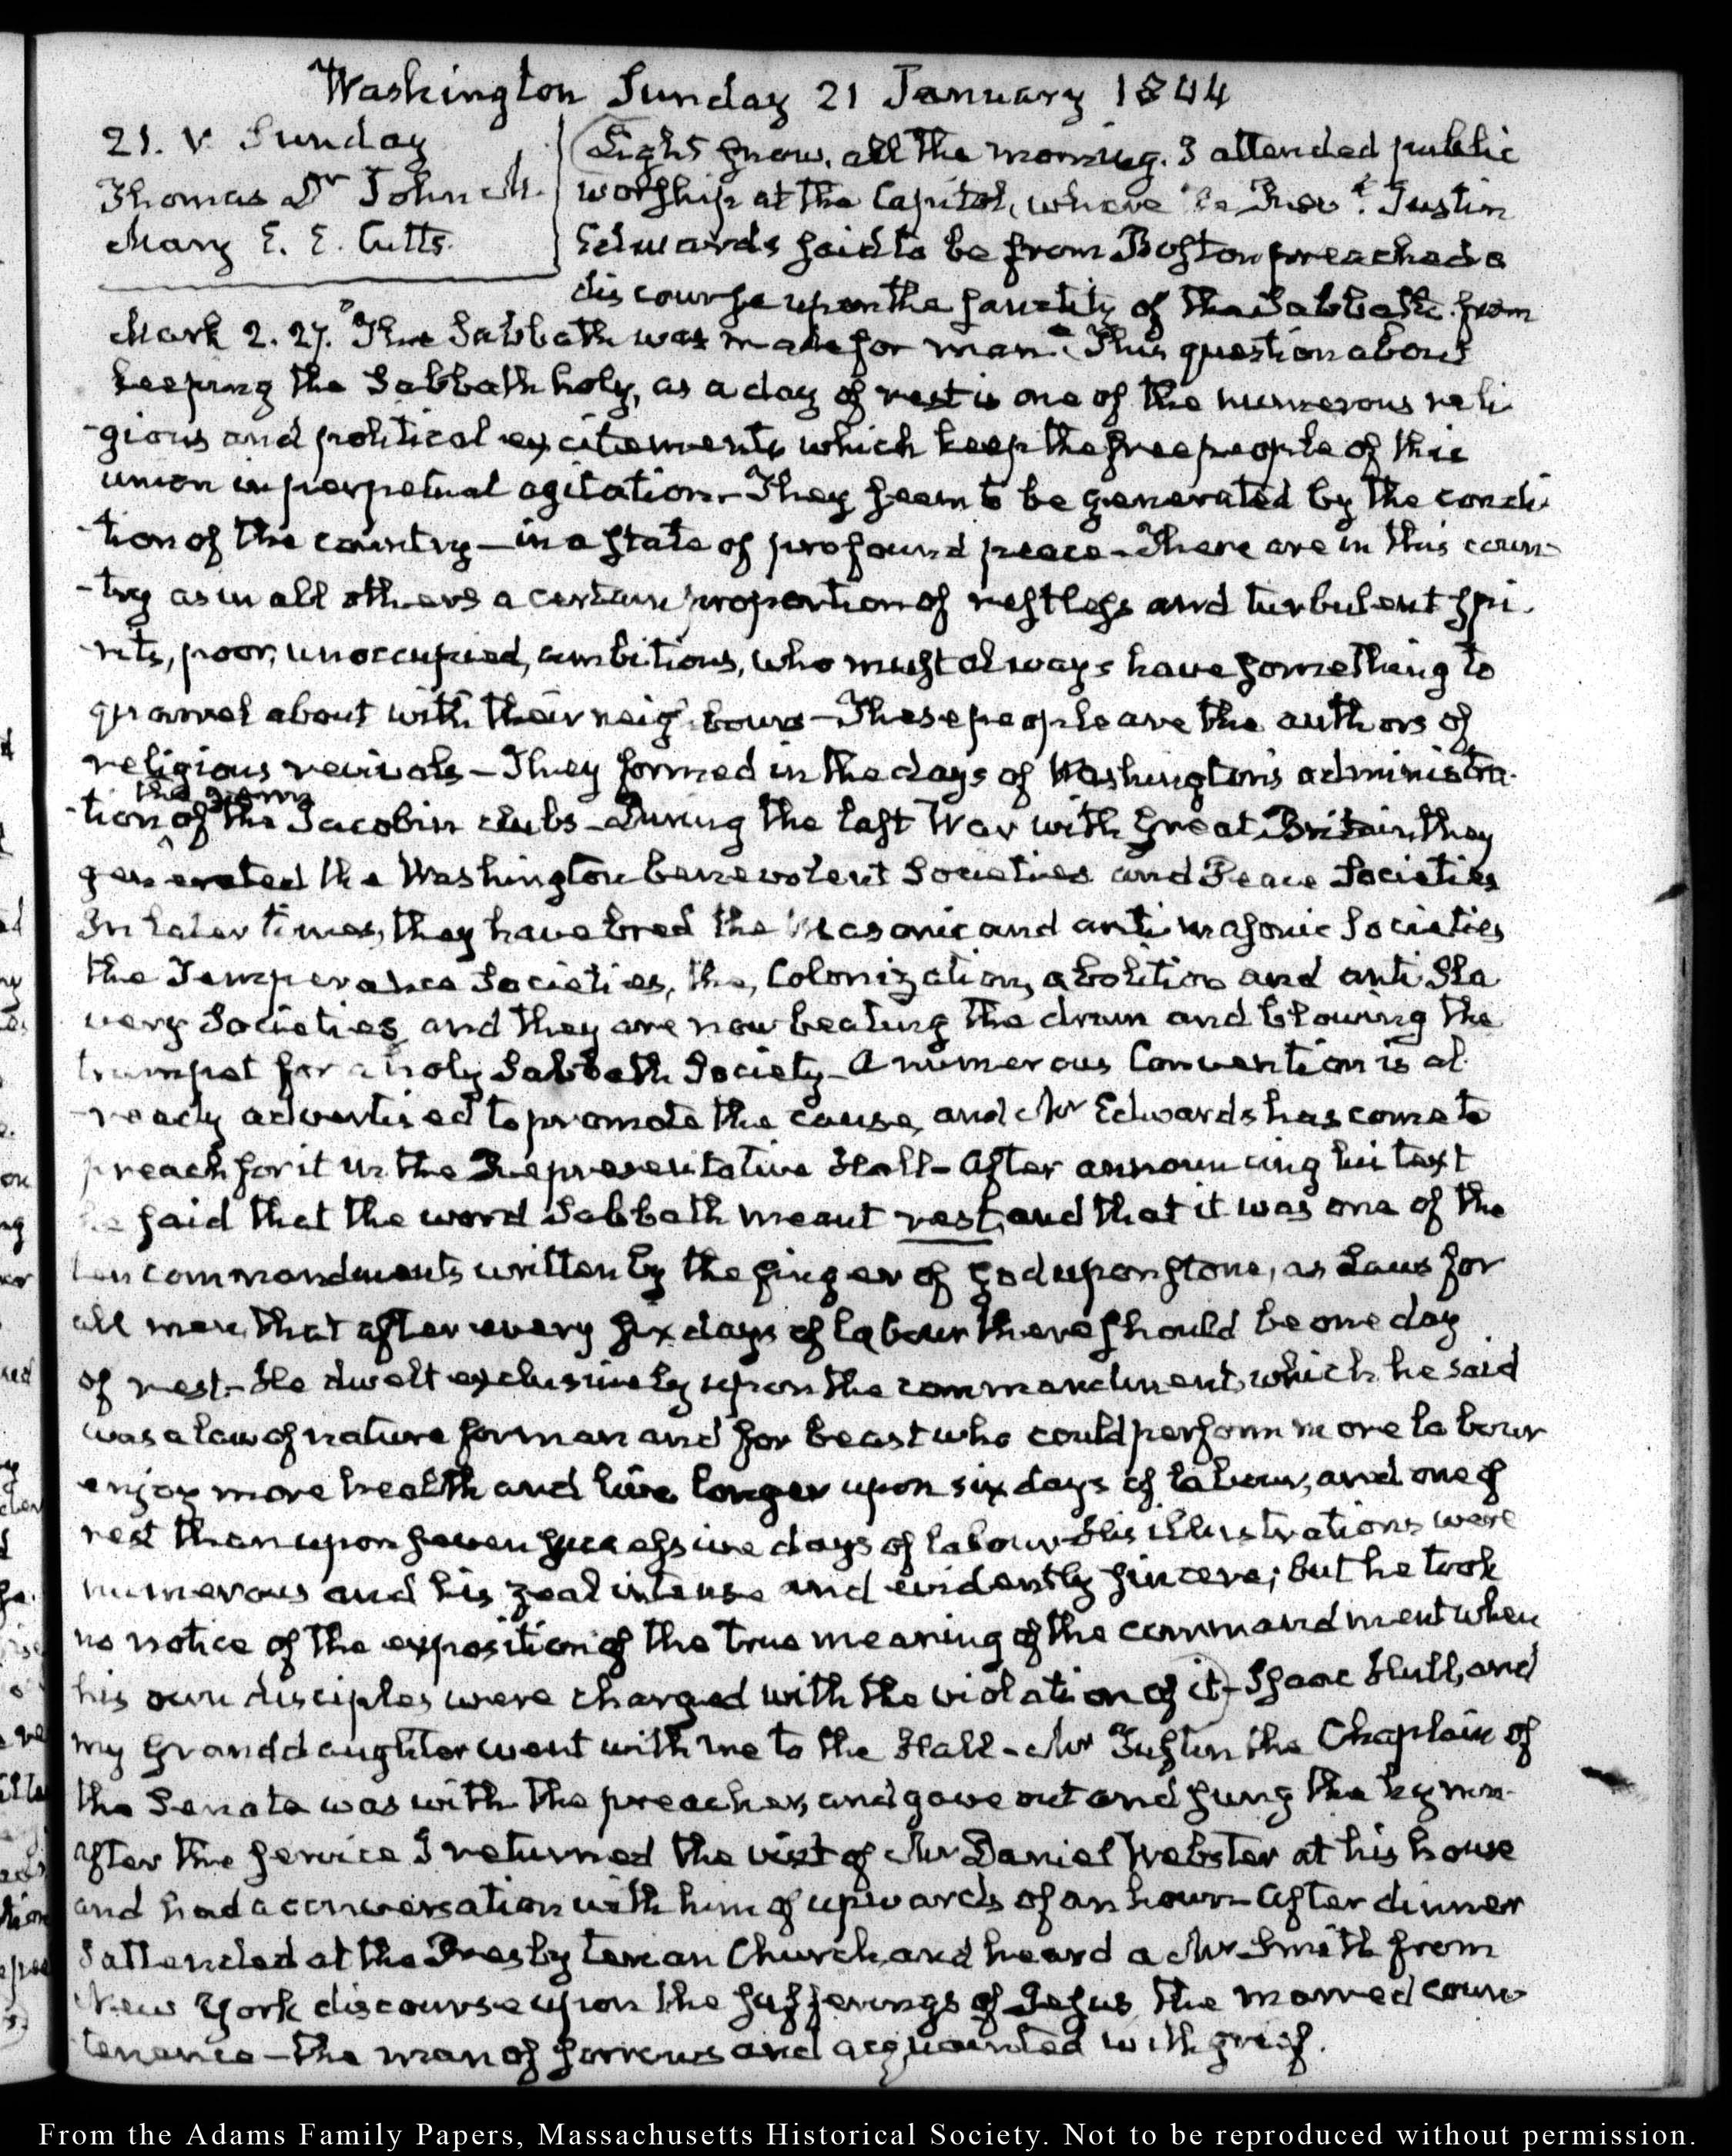 Washington Sunday 21 January 1844
21. V. Sunday
Thomas Dr John M.
Mary E. E. Cutts.
Light snow, all the morning. I attended public
worship at the Capitol, where Justin
Edwards said to be from Boston preached a
discourse upon the sanctity of the Sabbath. from
Mark 2. 27. "The Sabbath was made for man." This question about
keeping the Sabbath holy, as a day of rest is one of the numerous reli-
-gious and political excitements which keep the free people of this
union in perpetual agitation. They seem to be generated by the condi-
-tion of the country—in a state of profound peace. There are in this coun-
-try as in all others a certain proportion of restless and turbulent spi-
-rits, poor, unoccupied, ambitious, who must always have something to
quarrel about with their neighbours—These people are the authors of
religious revivals—They formed in the days of Washington's administra-
the germ
-tion of the Jacobin clubs—During the last War with Great Britain, they
generated the Washington benevolent Societies and Peace Societies
In later times, they have bred the Masonic and anti masonic Societies
the Temperance Societies, the, Colonization, abolition and anti Sla
very Societies, and they are now beating the drum and blowing the
trumpet for a holy Sabbath Society—A numerous Convention is al-
-ready advertised to promote the cause, and Mr Edwards has come to
preach for it in the Representative Hall—After announcing his text
he said that the word Sabbath meant rest, and that it was one of the
ten commandments written by the finger of God upon stone, as Laws for
all men, that after every six days of labour there should be one day
of rest—He dwelt exclusively upon the commandment, which he said
was a law of nature for man and for beast who could perform more labour
enjoy more health and live longer upon six days of labour, and one of
rest than upon seven successive days of labour—His illustrations were
numerous and his zeal intense and evidently sincere; but he took
no notice of the exposition of the true meaning of the commandment when
his own disciples were charged with the violation of it—Isaac Hull, and
my Granddaughter went with me to the Hall—Mr Tustin the Chaplain of
the Senate was with the preacher, and gave out and sung the hymn.
After the service I returned the visit of Mr Daniel Webster at his house
and had a conversation with him of upwards of an hour—After dinner
I attended at the Presbyterian Church, and heard a Mr Smith from
New York discourse upon the sufferings of Jesus the marred coun-
-tenance—the man of sorrows and acquainted with grief.
From the Adams Family Papers, Massachusetts Historical Society. Not to be reproduced without permission.